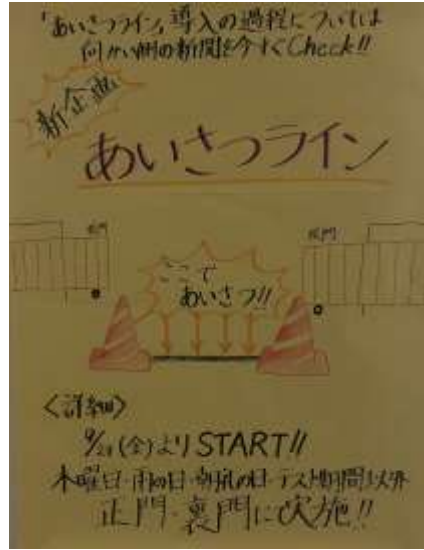 「あいさつライン」導入の過程については
向かい側の新聞を今すぐCheck!!
新企画
あいさつライン
校門
校門
ここで
あいさつ!!
<詳細>
(金)よりSTART!!
木曜日・雨の日・朝礼の日・テスト期間以外
正門・裏門にて実施!!